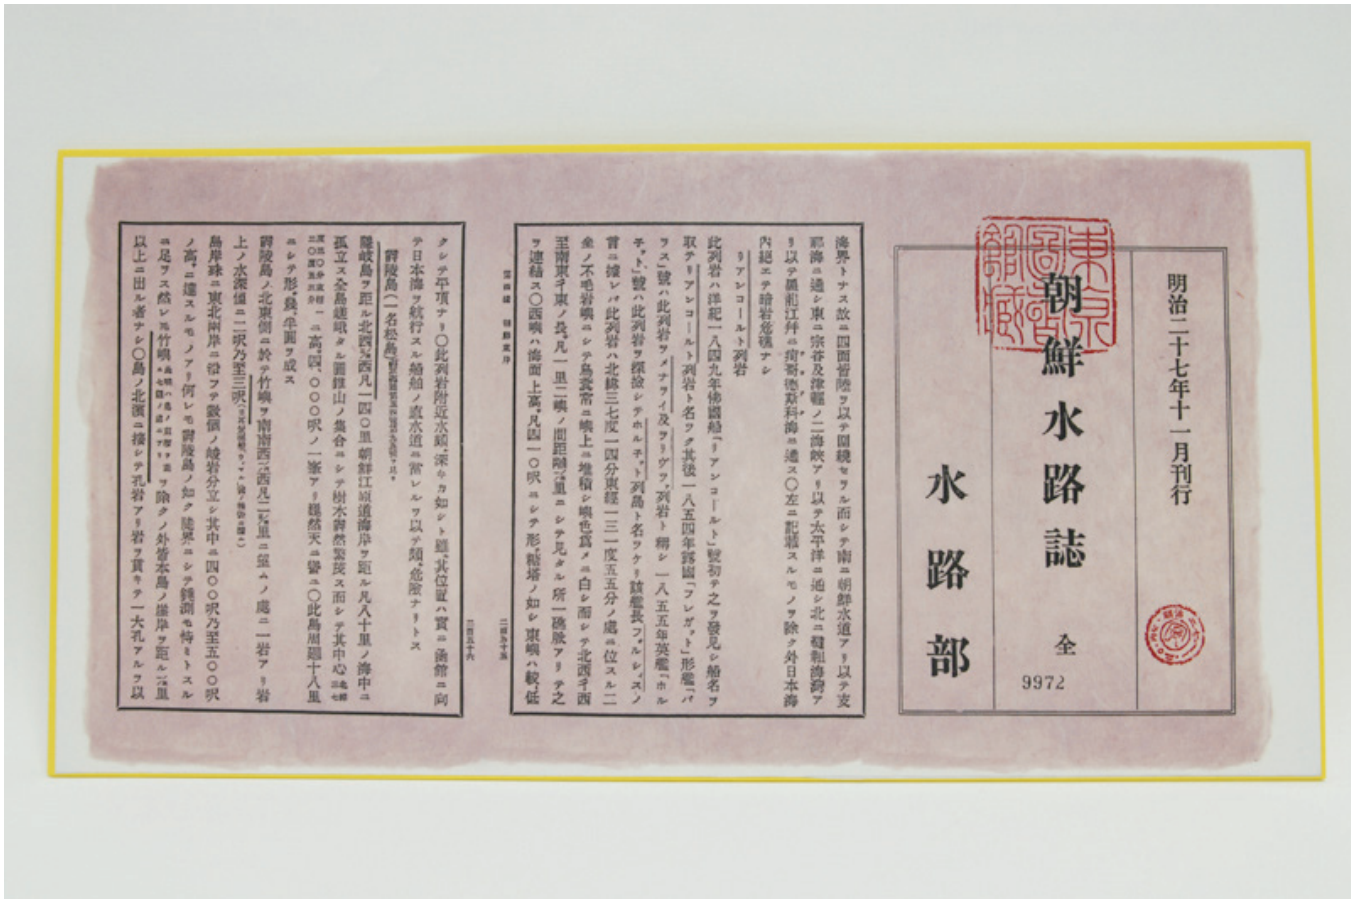 明治二十七年十一月刊行
朝鮮水路誌 全
9972
水路部
海界トナス故ニ四面皆陸ヲ以テ圍繞セラル而シテ南ニ朝鮮水道アリ以テ支
那海ニ通シ東ニ宗谷及津輕ノ二海峽アリ以テ太平洋ニ通シ北ニ韃靼海灣ア
リ以テ黑龍江幷ニ疴哥德斯科海ニ通ス〇左ニ記載スルモノヲ除ク外日本海
內絕エテ暗岩危礁ナシ
リアンコールト列岩
此列岩ハ洋紀一八四九年佛國船「リアンコールト」號初テ之ヲ發見シ船名ヲ
取テリアンコールト列岩ト名ツク其後一八五四年露國「フレガット」形艦「パ
ラス」號ハ此列岩ヲメナライ及ヲリヴツァ列岩ト稱シ一八五五年英艦「ホル
子ット」號ハ此列岩ヲ探撿シテホル子ット列島ト名ツケリ該艦長フォルシィスノ
言ニ據レバ此列岩ハ北緯三七度一四分東經一三一度五五分ノ處ニ位スル二
坐ノ不毛岩嶼ニシテ鳥糞常ニ嶼上ニ堆積シ嶼色爲メニ白シ而シテ北西彳西
至南東彳東ノ長サ凡一里二嶼ノ間距離 里ニシテ見タル所一礁脈アリテ之
ヲ連結ス〇西嶼ハ海面上高サ凡四一〇呎ニシテ形チ糖塔ノ如シ東嶼ハ較低
第四編 朝鮮東岸
二百五十五
二百五十六
クシテ平頂ナリ〇此列岩附近水頗ル深キカ如シト雖𪜈其位置ハ實ニ函館ニ向
テ日本海ヲ航行スル船舶ノ直水道ニ當レルヲ以テ頗ル危險ナリトス
鬱陵島(一名松島)
隱岐島ヲ距ル北西 西凡一四〇里朝鮮江原道海岸ヲ距ル凡八十里ノ海中ニ
孤立ス全島嵯峨タル圓錐山ノ集合ニシテ樹木鬱然繁茂ス而シテ其中心 北緯三七
度三〇分東經一三〇度五三分 ニ高サ四、〇〇〇呎ノ一峯アリ巍然天ニ聳ユ〇此島周廻十八里
ニシテ形チ幾ント半圓ヲ成ス
鬱陵島ノ北東側ニ於テ竹嶼ヲ南南西 西凡二 里ニ望ムノ處ニ一岩アリ岩
上ノ水深僅ニ二呎乃至三呎
島岸殊ニ東北兩岸ニ沿フテ數個ノ峻岩分立シ其中ニ四〇〇呎乃至五〇〇呎
ノ高サニ達スルモノアリ何レモ鬱陵島ノ如ク陡界ニシテ錘測モ恃ミトスル
ニ足ラス然レ𪜈竹嶼 ヲ除クノ外皆本島ノ崖岸ヲ距ル 里
以上ニ出ル者ナシ〇島ノ北濱ニ接シテ孔岩アリ岩ヲ貫キテ一大孔アルヲ以